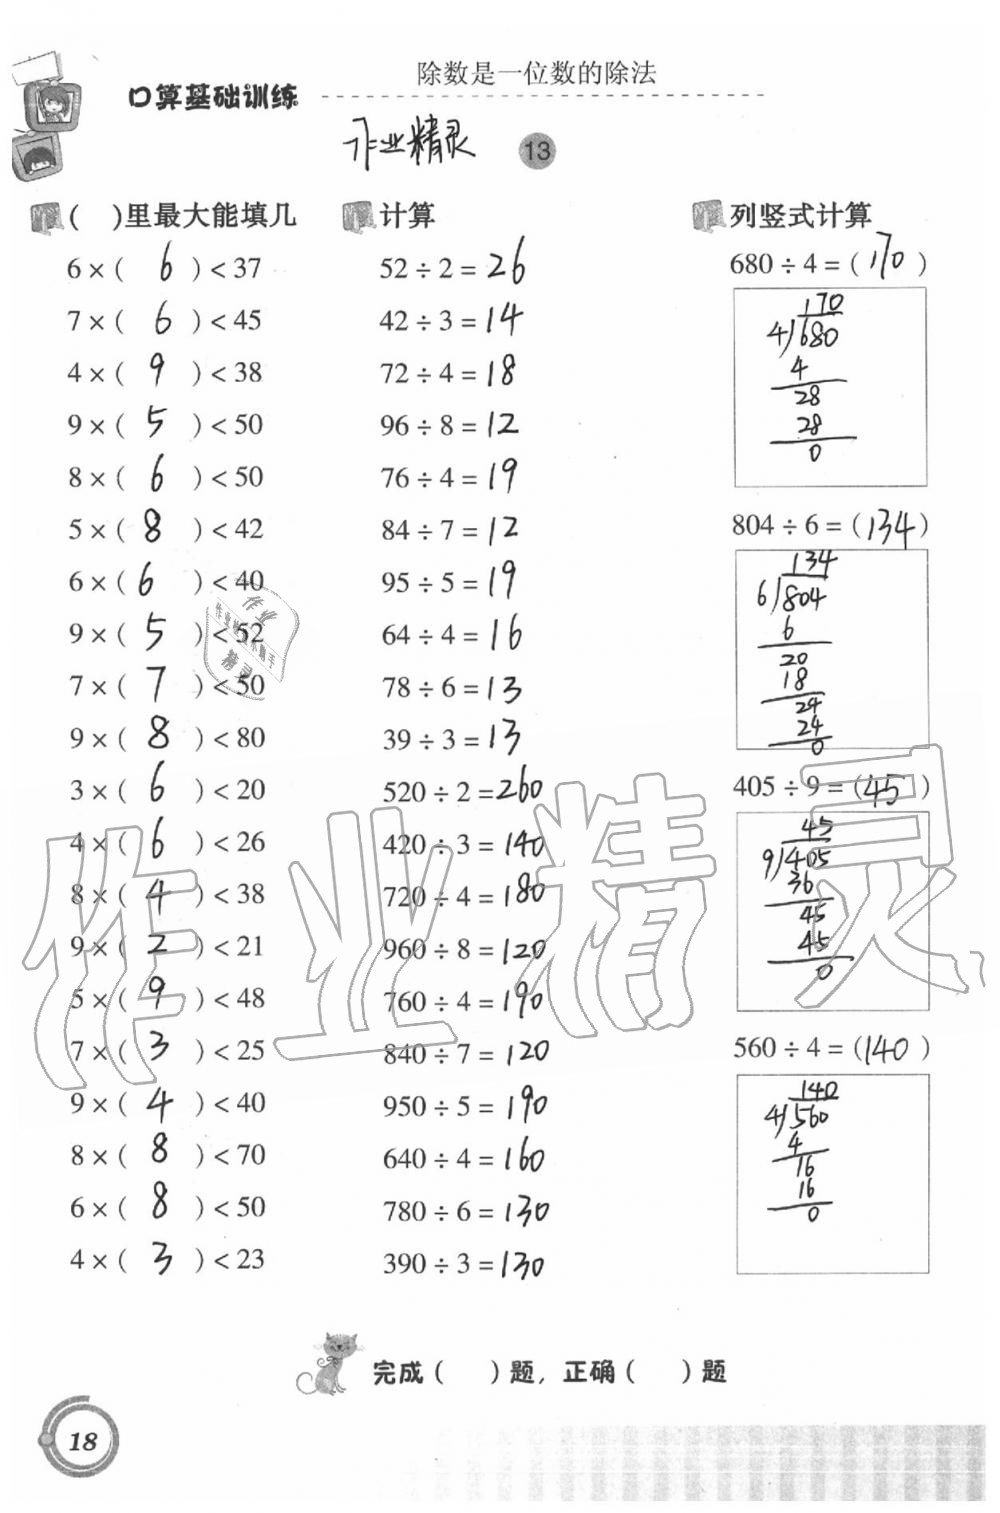 除数是一位数的除法
口算基础训练
作业精灵 13
( )里最大能填几
6 × ( 6 ) < 37
7 × ( 6 ) < 45
4 × ( 9 ) < 38
9 × ( 5 ) < 50
8 × ( 6 ) < 50
5 × ( 8 ) < 42
6 × ( 6 ) < 40
9 × ( 5 ) < 52
7 × ( 7 ) < 50
9 × ( 8 ) < 80
3 × ( 6 ) < 20
4 × ( 6 ) < 26
8 × ( 4 ) < 38
9 × ( 2 ) < 21
5 × ( 9 ) < 48
7 × ( 3 ) < 25
9 × ( 4 ) < 40
8 × ( 8 ) < 70
6 × ( 8 ) < 50
4 × ( 3 ) < 23
计算
52 ÷ 2 = 26
42 ÷ 3 = 14
72 ÷ 4 = 18
96 ÷ 8 = 12
76 ÷ 4 = 19
84 ÷ 7 = 12
95 ÷ 5 = 19
64 ÷ 4 = 16
78 ÷ 6 = 13
39 ÷ 3 = 13
520 ÷ 2 = 260
420 ÷ 3 = 140
720 ÷ 4 = 180
960 ÷ 8 = 120
760 ÷ 4 = 190
840 ÷ 7 = 120
950 ÷ 5 = 190
640 ÷ 4 = 160
780 ÷ 6 = 130
390 ÷ 3 = 130
列竖式计算
680 ÷ 4 = ( 170 )
170
4)680
4
28
28
0
804 ÷ 6 = ( 134 )
134
6)804
6
20
18
24
24
0
405 ÷ 9 = ( 45 )
45
9)405
36
45
45
0
560 ÷ 4 = ( 140 )
140
4)560
4
16
16
0
完成 ( ) 题, 正确 ( ) 题
18
作业精灵
作业
精灵